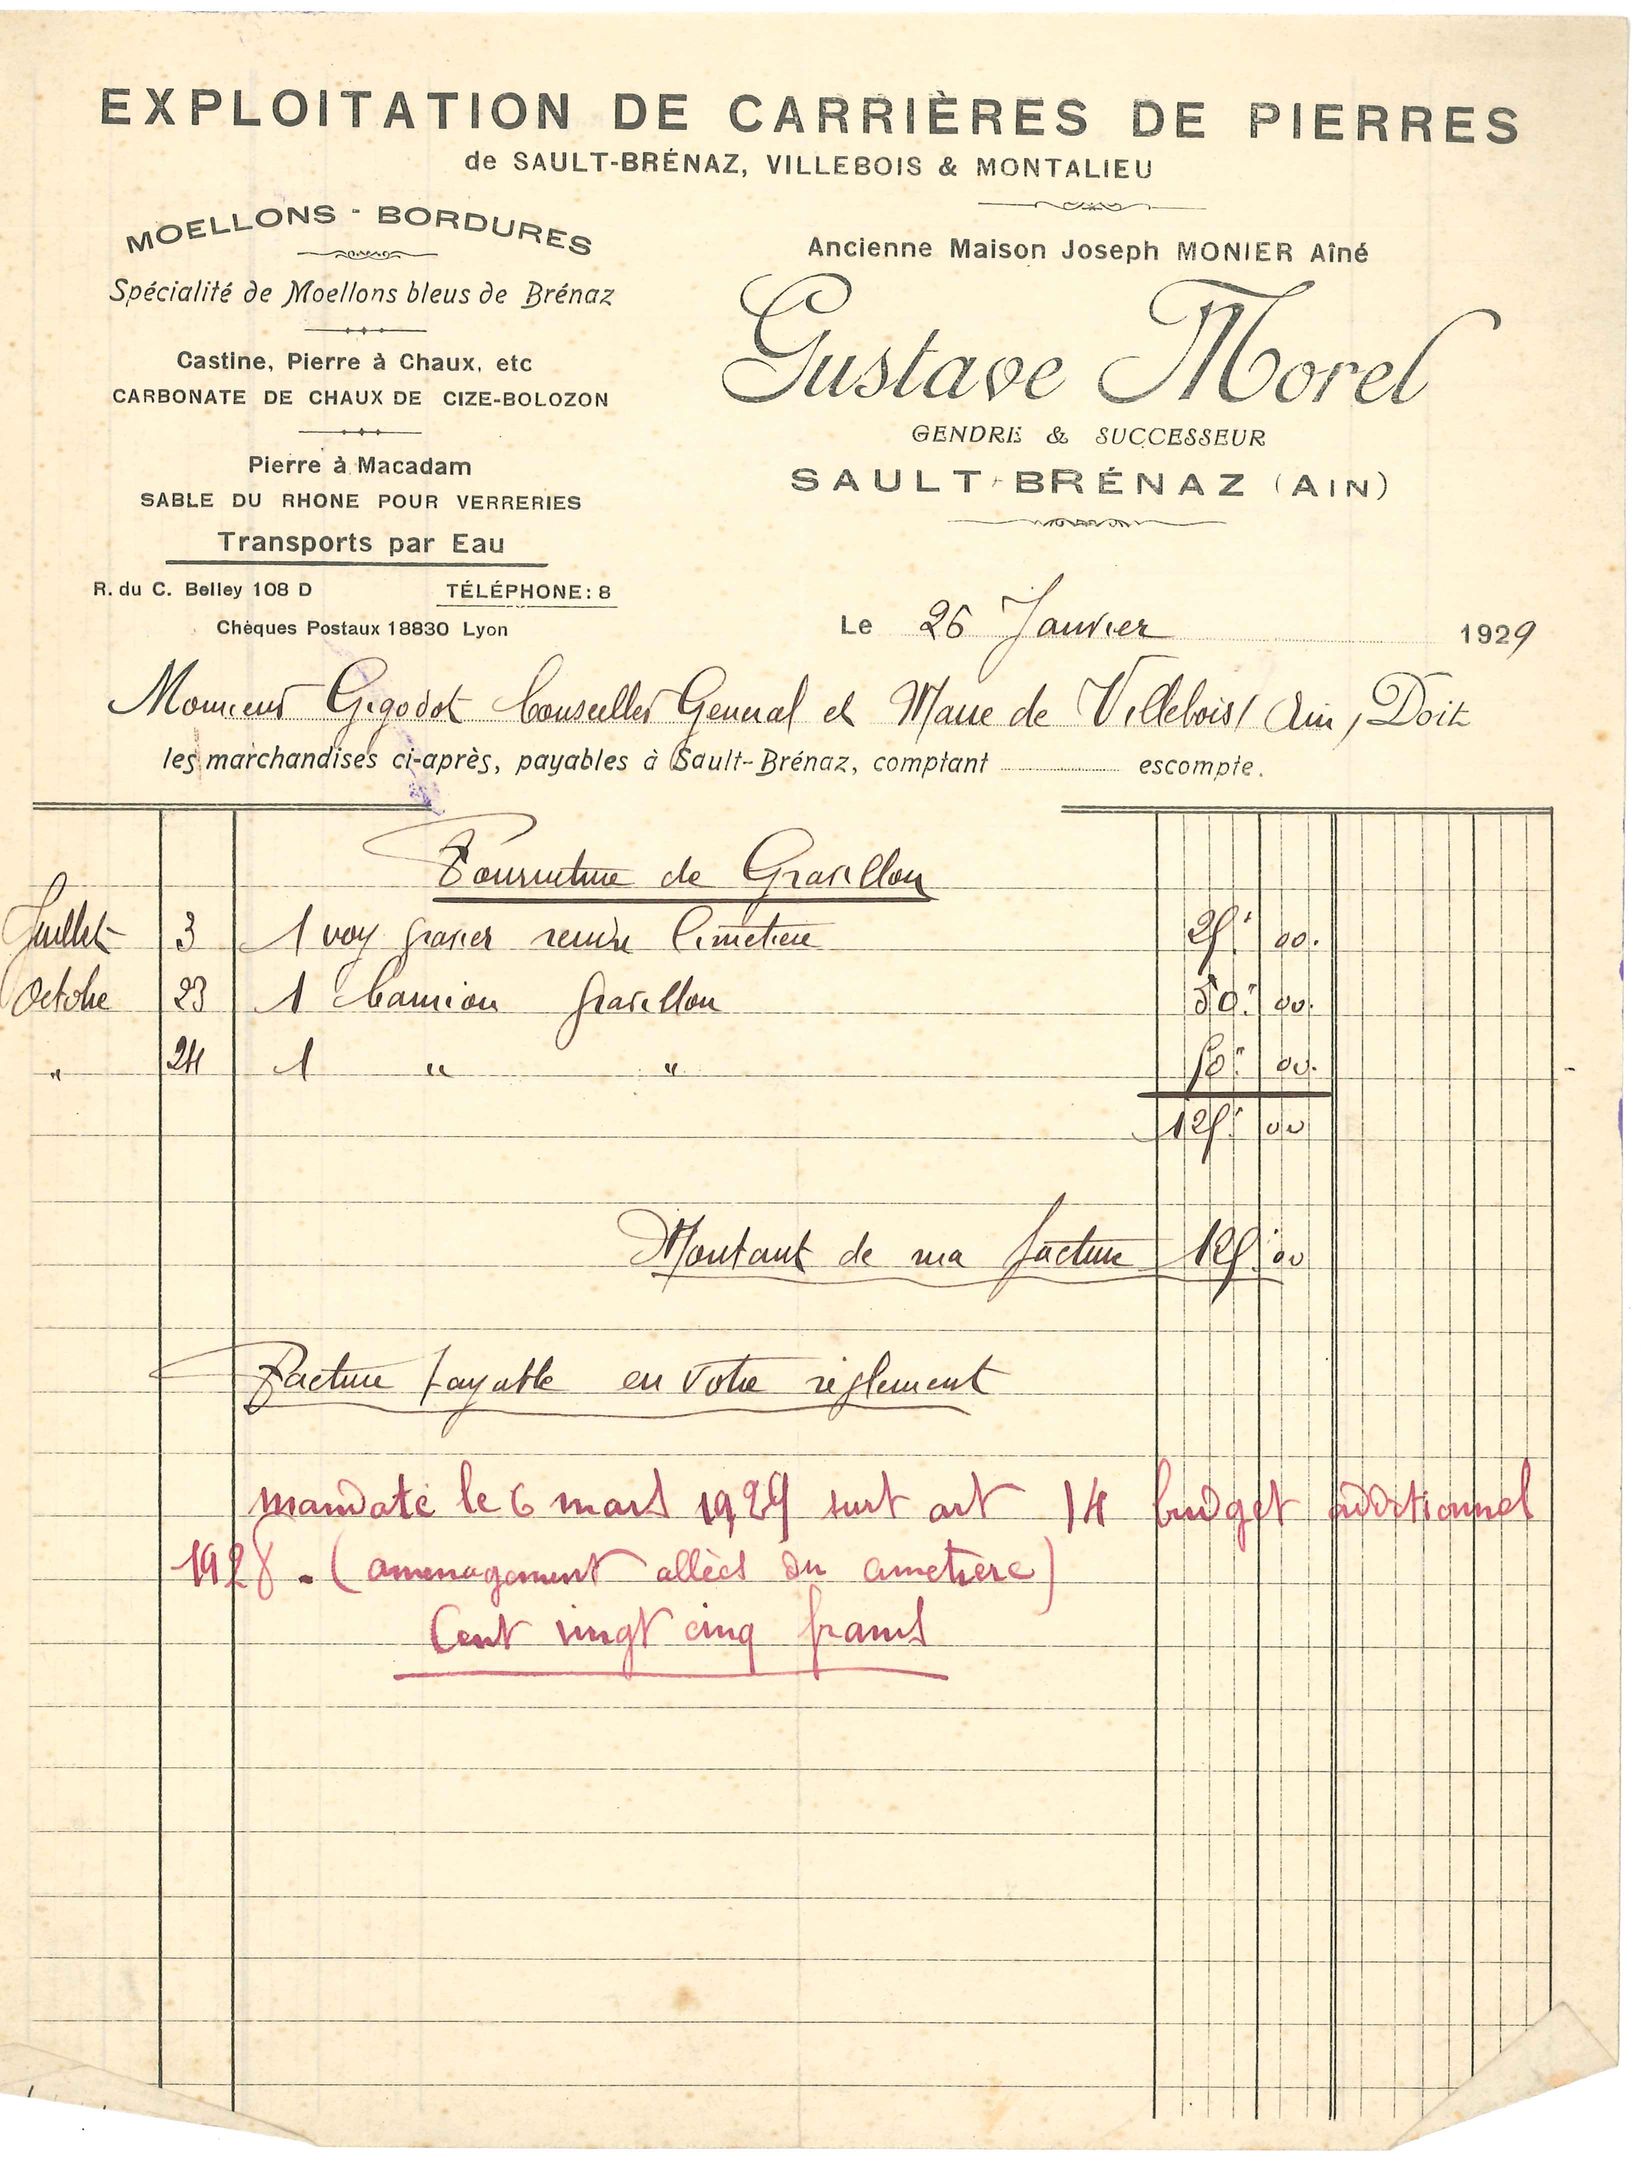 EXPLOITATION DE CARRIÈRES DE PIERRES
de SAULT-BRÉNAZ, VILLEBOIS & MONTALIEU
MOELLONS - BORDURES
Spécialité de Moellons bleus de Brénaz
Castine, Pierre à Chaux, etc
CARBONATE DE CHAUX DE CIZE-BOLOZON
Pierre à Macadam
SABLE DU RHONE POUR VERRERIES
Transports par Eau
R. du C. Belley 108 D TÉLÉPHONE: 8
Chèques Postaux 18830 Lyon
Ancienne Maison Joseph MONIER Aîné
Gustave Morel
GENDRE & SUCCESSEUR
SAULT-BRÉNAZ (AIN)
Le 26 Janvier 1929
Monsieur Gigodot Conseiller General et Maire de Villebois (Ain) Doit
les marchandises ci-après, payables à Sault-Brénaz, comptant escompte.
Fourniture de Gravillon
Juillet 3 1 voy gravier rendu Cimetiere 25 00
Octobre 23 1 Camion gravillon 50 00
" 24 1 " " 50 00
125 00
Montant de ma facture 125 00
Facture payable en votre règlement
mandaté le 6 mars 1929 surt art 14 budget additionnel
1928 - (amenagement allées du cimetiere)
Cent vingt cinq francs